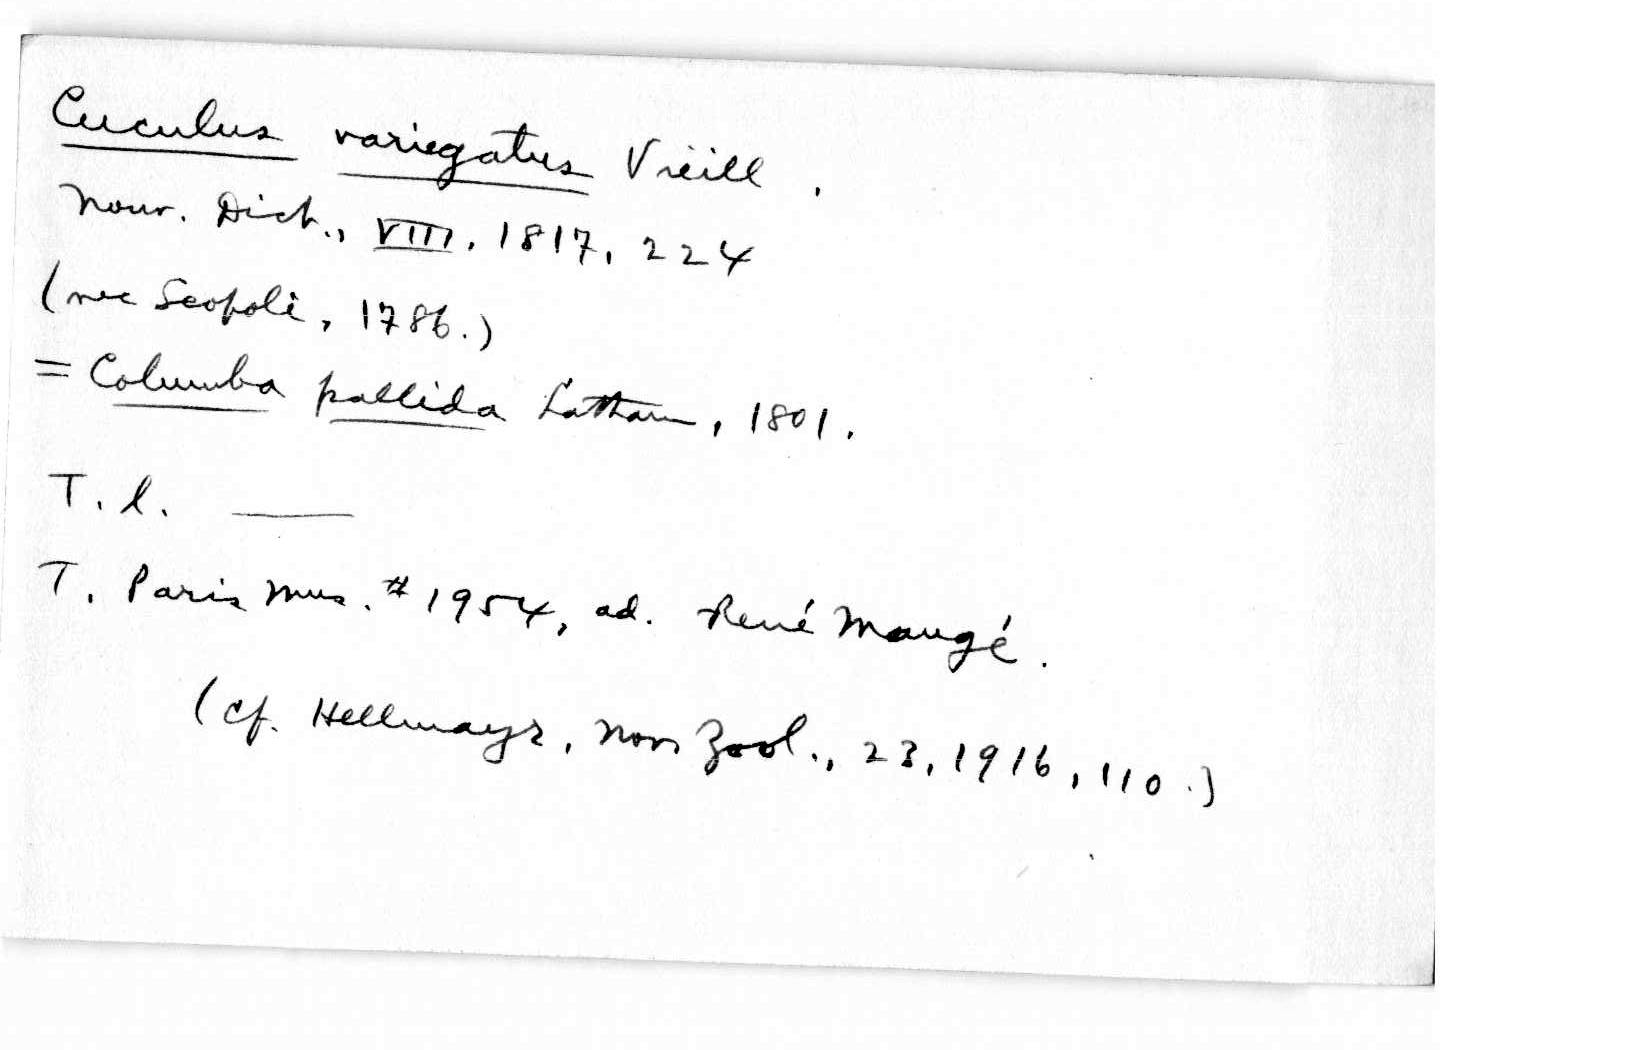 Cuculus variegatus Vieill.
Nouv. Dict., VIII, 1817, 224
(nec Scopoli, 1786.)
= Columba pallida Latham, 1801.
T. l. ——
T. Paris Mus. # 1954, ad. René Maugé.
(cf. Hellmayr, Nov Zool., 23, 1916, 110.)